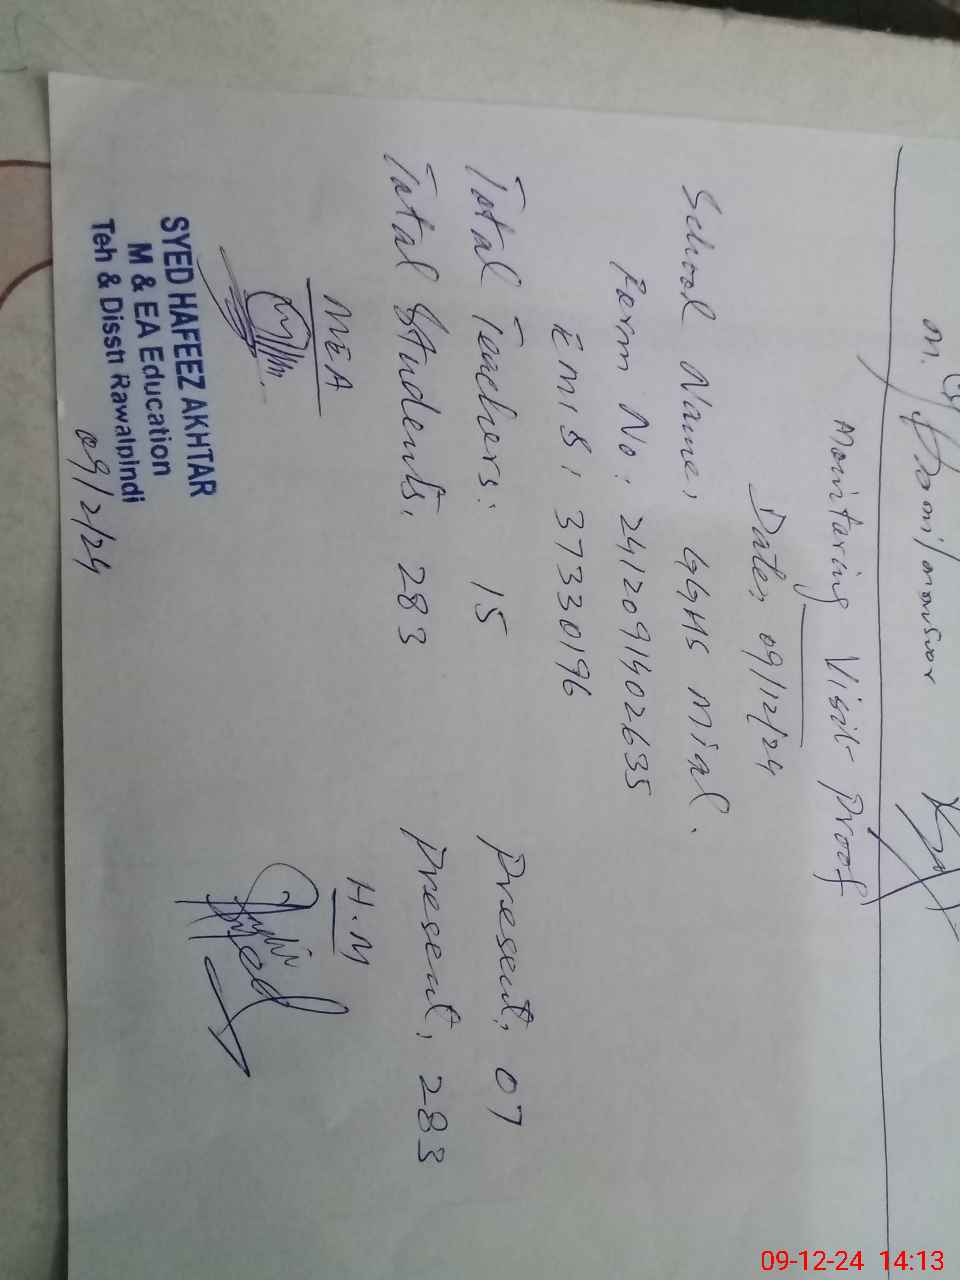 Monitoring Visit Proof
Date, 09/12/24
School Name, GGHS Mial.
Form No: 2412091402635
EMIS, 37330196
Total Teachers: 15 Present, 07
Total Students, 283 Present, 283
MEA H.M
SYED HAFEEZ AKHTAR
M & EA Education
Teh & Disstt Rawalpindi
09/2/24
09-12-24 14:13